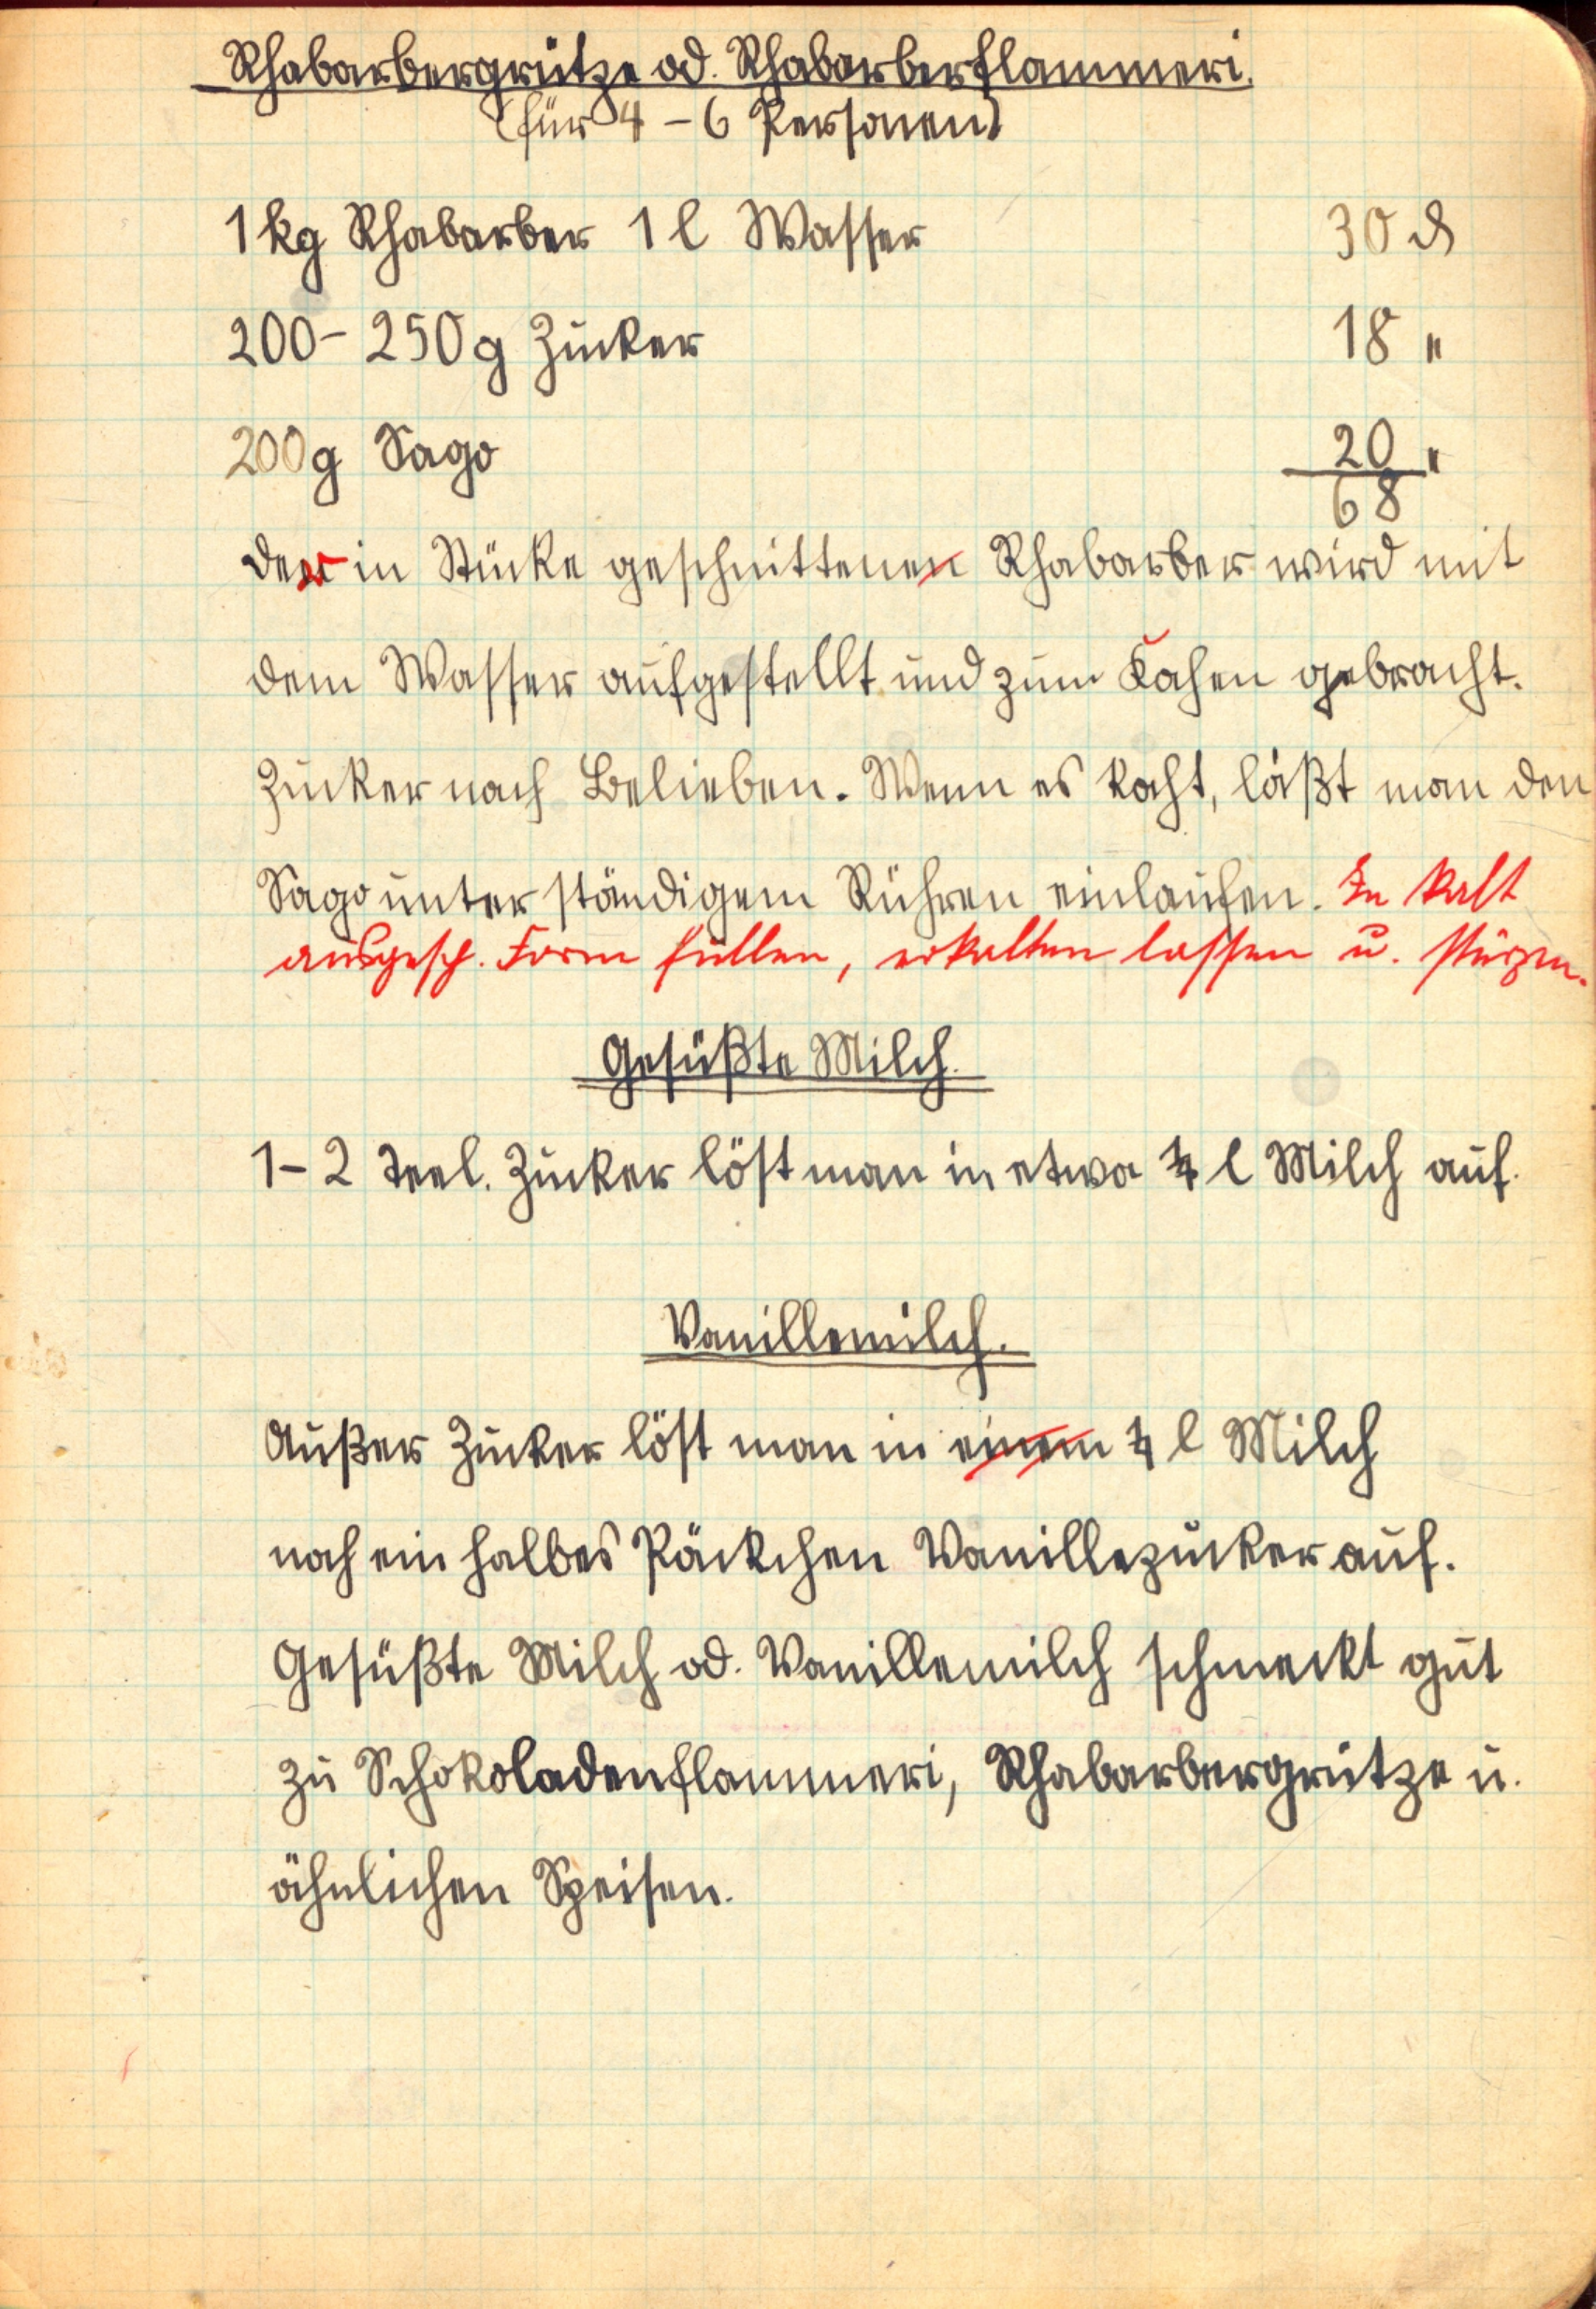 Rhabarbergrütze od. Rhabarberflammeri.
(für 4 – 6 Personen)
1 kg Rhabarber 1 l Wasser 30 ₰
200 – 250 g Zucker 18 "
200 g Sago 20 "
68
der in Stücke geschnittenen Rhabarber wird mit
dem Wasser aufgestellt und zum Kochen gebracht.
Zucker nach Belieben. Wenn es kocht, läßt man den
Sago unter ständigem Rühren einlaufen. In kalt
ausgesp. Form füllen, erkalten lassen u. stürzen.
Gesüßte Milch.
1 – 2 Teel. Zucker löst man in etwa ¼ l Milch auf.
Vanillemilch.
Außer Zucker löst man in einem ¼ l Milch
noch ein halbes Päckchen Vanillezucker auf.
Gesüßte Milch od. Vanillemilch schmeckt gut
zu Schokoladenflammeri, Rhabarbergrütze u.
ähnlichen Speisen.